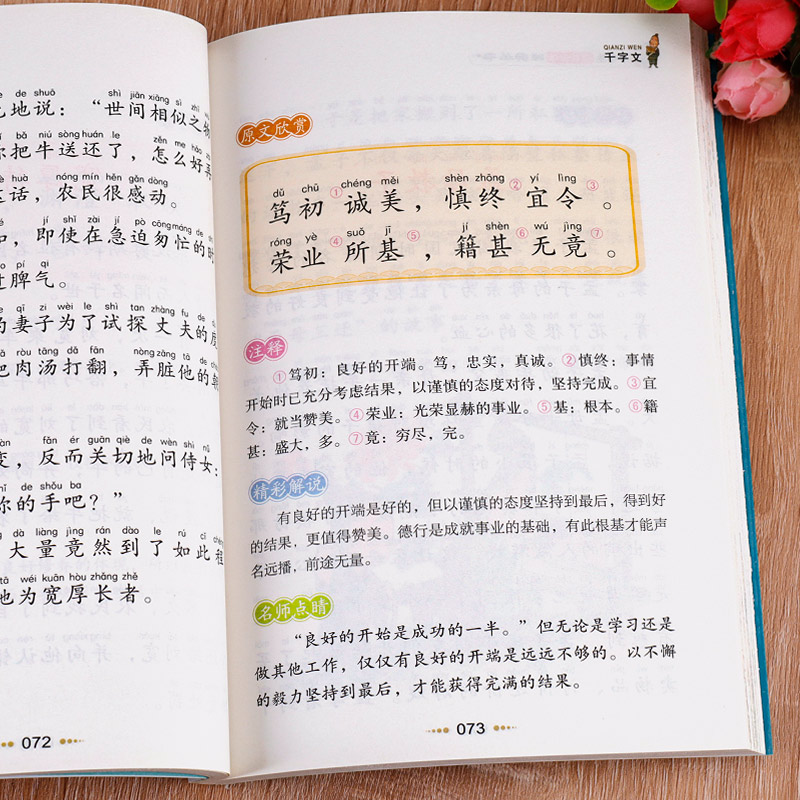 de shuō shì jiān xiāng sì zhī
地说：“世间相似之物
bǎ niú sòng huán le zěn me hǎo
你把牛送还了，怎么好弄
huà nóng mín hěn gǎn dòng
这话，农民很感动。
jí shǐ zài jí pò cōng máng de
即使在急迫匆忙的时
pí qi
过脾气。
qī zǐ wèi le shì tàn zhàng fu de
的妻子为了试探丈夫的度
ròu tāng dǎ fān nòng zāng tā de
把肉汤打翻，弄脏他的朝
fǎn ér guān qiè de wèn shì nǚ
变，反而关切地问侍女：
de shǒu ba
你的手吧？”
dà liàng jìng rán dào le rú cǐ
大量竟然到了如此程
wéi kuān hòu zhǎng zhě
他为宽厚长者。
072
QIANZI WEN
千字文
原文欣赏
dǔ chū chéng měi shèn zhōng yí lìng
笃初①诚美，慎终②宜令③。
róng yè suǒ jī jí shèn wú jìng
荣业④所基⑤，籍甚⑥无竟⑦。
注释
①笃初：良好的开端。笃，忠实，真诚。②慎终：事情
开始时已充分考虑结果，以谨慎的态度对待，坚持完成。③宜
令：就当赞美。④荣业：光荣显赫的事业。⑤基：根本。⑥籍
甚：盛大，多。⑦竟：穷尽，完。
精彩解说
有良好的开端是好的，但以谨慎的态度坚持到最后，得到好
的结果，更值得赞美。德行是成就事业的基础，有此根基才能声
名远播，前途无量。
名师点睛
“良好的开始是成功的一半。”但无论是学习还是
做其他工作，仅仅有良好的开端是远远不够的。以不懈
的毅力坚持到最后，才能获得完满的结果。
073